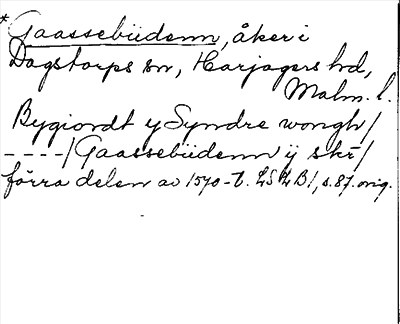 * Gaassebüdenn, åker i
Dagstorps sn, Harjagers hd,
Malm. l.
Bygiordt y Syndre wongh/
----/Gaassebüdenn ÿ skr̄/
förra delen av 1570-t. LSLB1, s.87. orig.